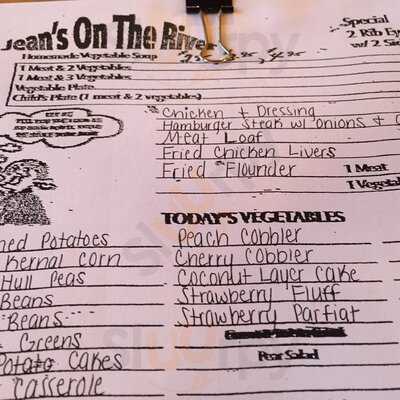 Jean's On The River
Special
2 Rib Ey
w/ 2 Sid
Homemade Vegetable Soup
1 Meat & 2 Vegetables
1 Meat & 3 Vegetables
Vegetable Plate
Child's Plate (1 meat & 2 vegetables)
Chicken + Dressing
Hamburger Steak w/ onions & G
Meat Loaf
Fried Chicken Livers
Fried Flounder
1 Meat
1 Vegetab
TODAY'S VEGETABLES
hed Potatoes
Peach Cobbler
Kernal Corn
Cherry Cobbler
Hull Peas
Coconut Layer Cake
Beans
Strawberry Fluff
Beans
Strawberry Parfiat
Greens
Potato Cakes
Pear Salad
Casserole